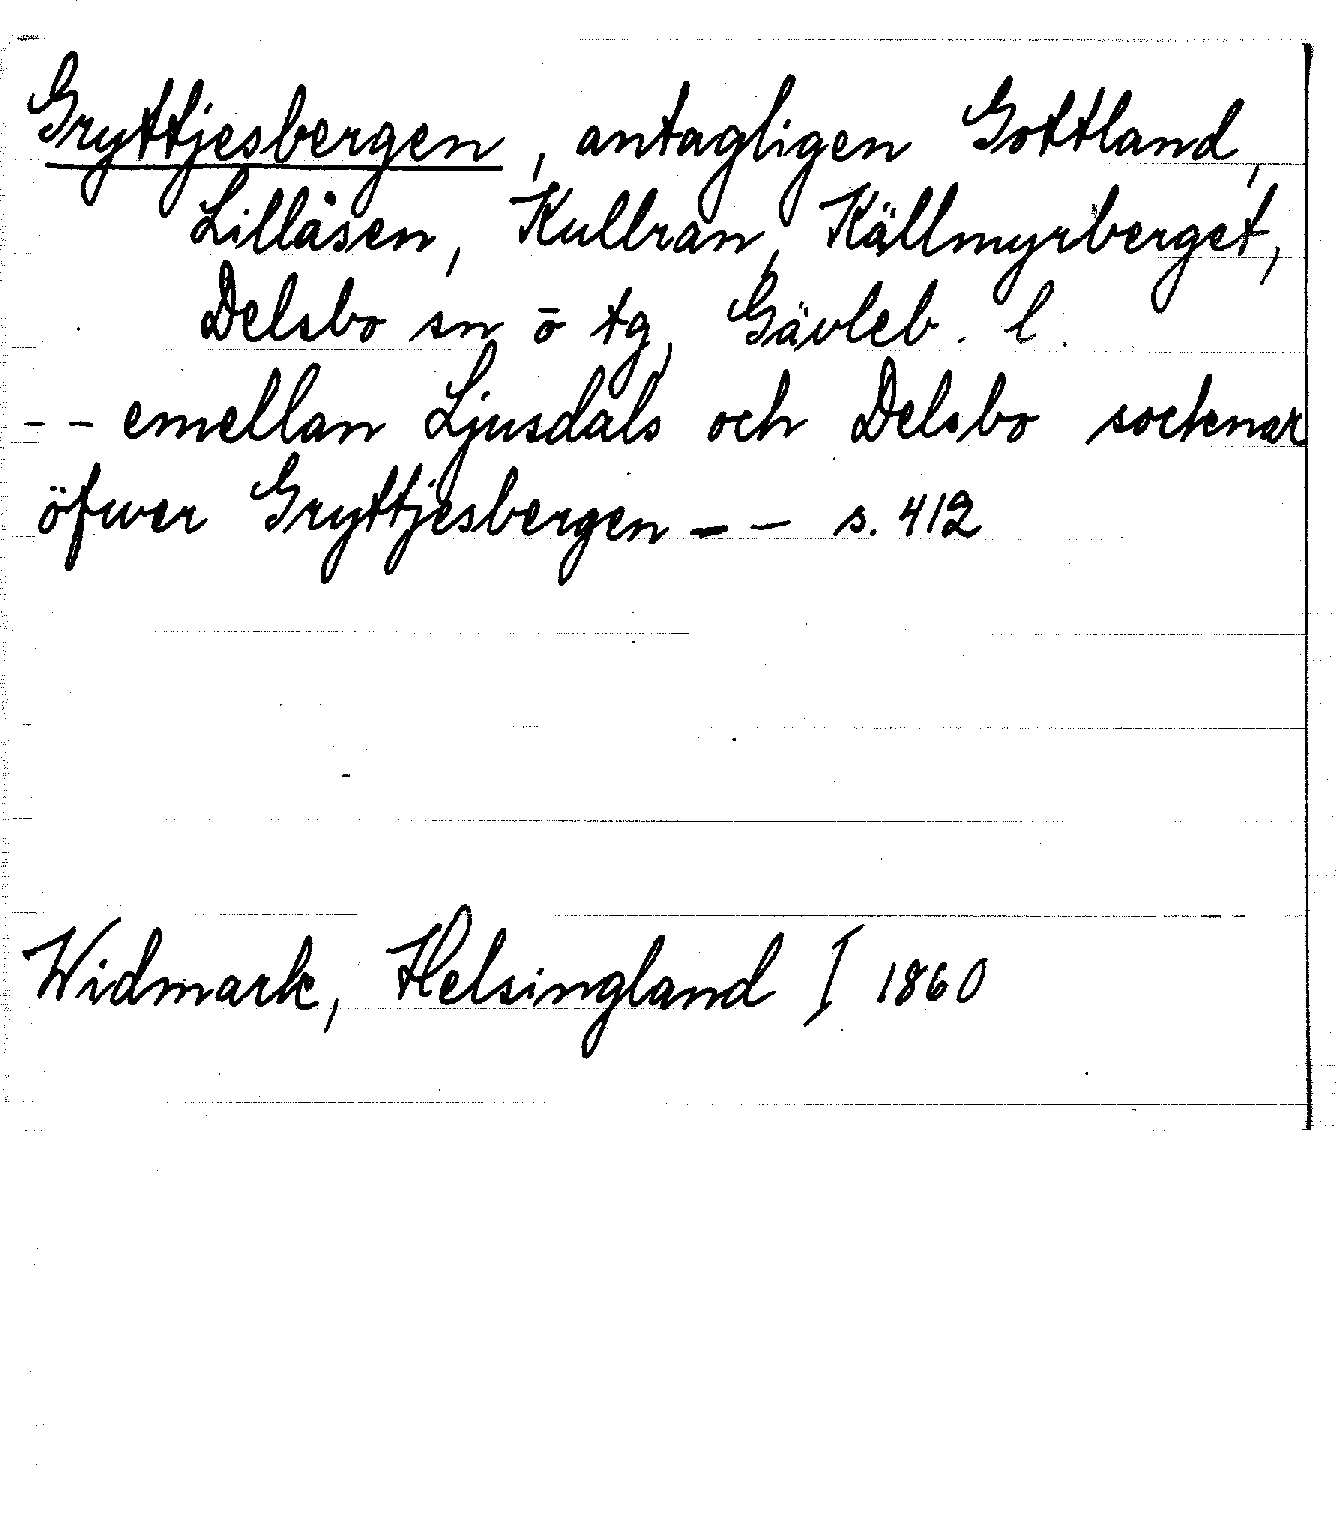 Gryttjesbergen, antagligen Gottland,
Lillåsen, Kullran, Källmyrberget,
Delsbo sn ō tg, Gävleb. l.
-- emellan Ljusdals och Delsbo socknar
öfwer Gryttjesbergen -- s. 412
Widmark, Helsingland I 1860